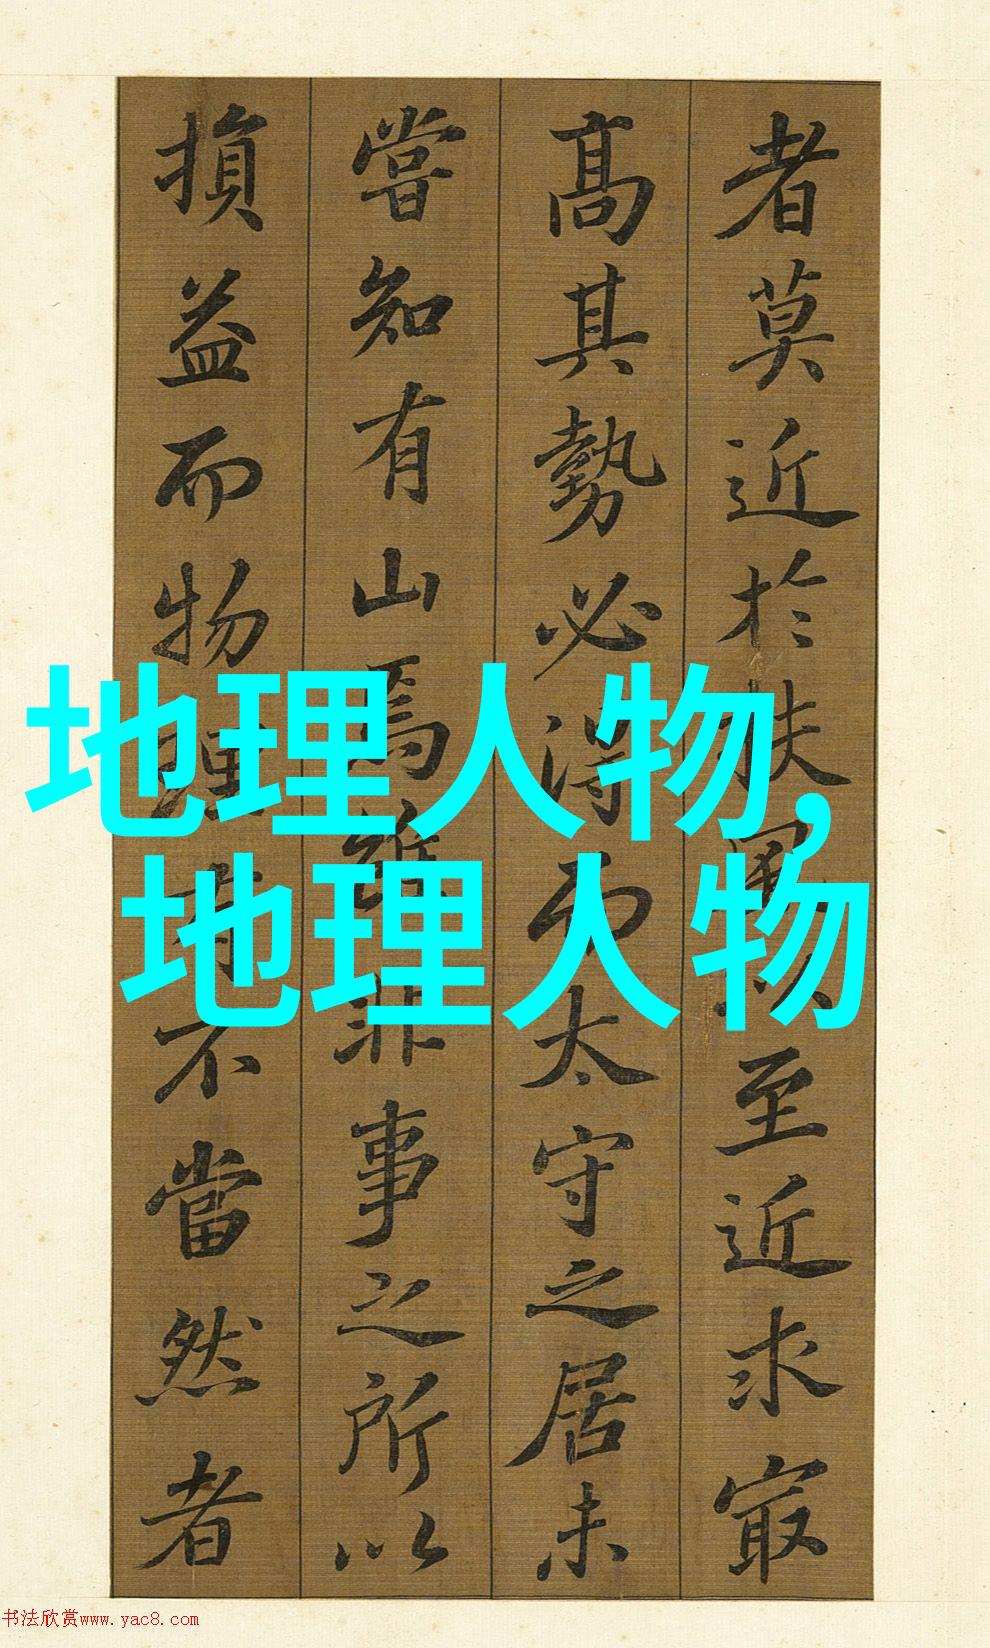 者莫近於扶風以至近求冣
高其勢必得而太守之居未
嘗知有山焉雖非事之所以
損益而物理有不當然者
地理人物,
地理人物
书法欣赏www.yac8.com